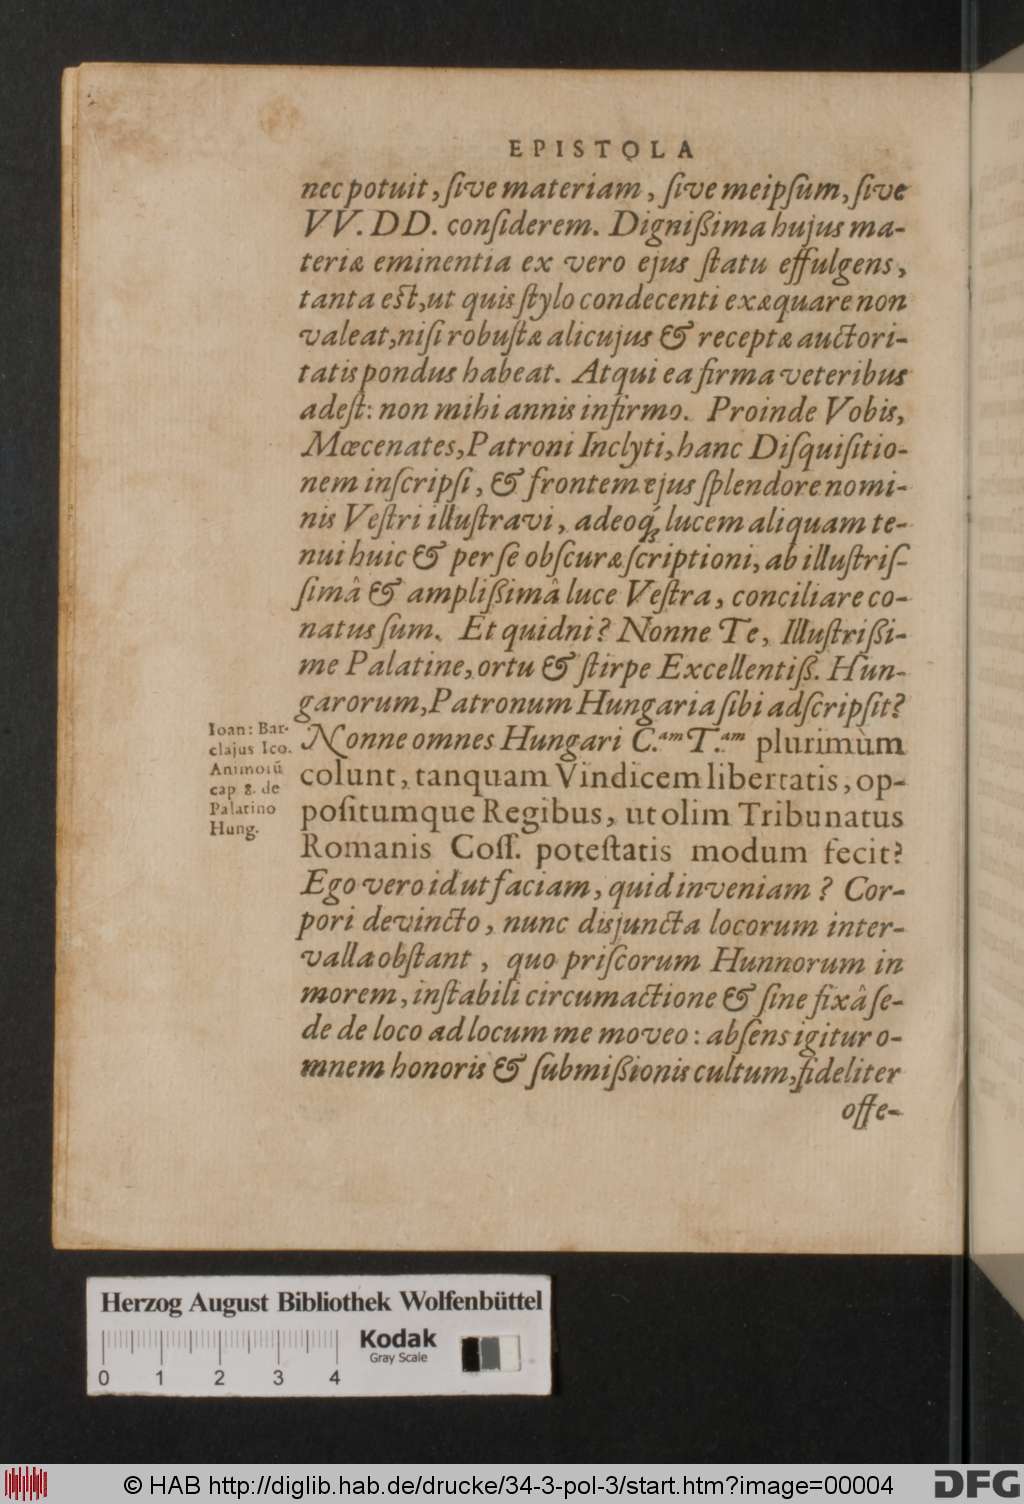 EPISTOLA
nec potuit, ſive materiam, ſive meipſum, ſive
VV. DD. conſiderem. Digniſſima hujus ma-
teriæ eminentia ex vero ejus ſtatu effulgens,
tanta eſt, ut quis ſtylo condecenti exæquare non
valeat, niſi robuſtæ alicujus & receptæ auctori-
tatis pondus habeat. Atqui ea firma veteribus
adeſt: non mihi annis infirmo. Proinde Vobis,
Mœcenates, Patroni Inclyti, hanc Diſquiſitio-
nem inſcripſi, & frontem ejus ſplendore nomi-
nis Veſtri illuſtravi, adeoq́; lucem aliquam te-
nui huic & per ſe obſcuræ ſcriptioni, ab illuſtriſ-
ſimâ & ampliſſimâ luce Veſtra, conciliare co-
natus ſum. Et quidni? Nonne Te, Illuſtriſſi-
me Palatine, ortu & ſtirpe Excellentiſſ. Hun-
garorum, Patronum Hungaria ſibi adſcripſit?
Nonne omnes Hungari C.am T.am plurimùm
colunt, tanquam Vindicem libertatis, op-
poſitumque Regibus, ut olim Tribunatus
Romanis Coſſ. poteſtatis modum fecit?
Ego vero id ut faciam, quid inveniam? Cor-
pori devincto, nunc disjuncta locorum inter-
valla obſtant, quo priſcorum Hunnorum in
morem, inſtabili circumactione & ſine fixâ ſe-
de de loco ad locum me moveo: abſens igitur o-
mnem honoris & ſubmiſſionis cultum, fideliter
offe-
Ioan: Bar-
clajus Ico.
Animorū
cap 8. de
Palatino
Hung.
Herzog August Bibliothek Wolfenbüttel
0 1 2 3 4
Kodak
Gray Scale
© HAB http://diglib.hab.de/drucke/34-3-pol-3/start.htm?image=00004
DFG